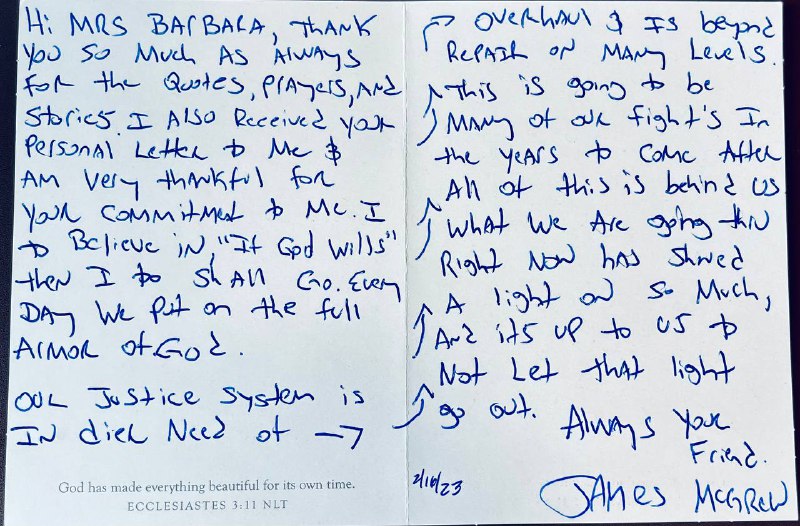 Hi MRS BARBARA, THANK
You so Much As Always
For the Quotes, Prayers, And
Stories. I Also Received your
Personal Letter to Me &
AM Very thankful for
Your commitment to Me. I
to Believe in, "If God Wills"
then I to shAll Go. Every
DAY We Put on the full
ARMOR of God.
OUR Justice System is
IN dier Need of →
God has made everything beautiful for its own time.
ECCLESIASTES 3:11 NLT
OVERHAUl & Is beyond
REPAIR on MANy Levels.
This is going to be
MANy of our fight's In
the years to Come After
All of this is behind us
What We Are going thru
Right Now has Shined
A light on so Much,
And it's UP to US to
Not Let that light
go out.
Always Your
Friend.
2/16/23
JAMES McGREW